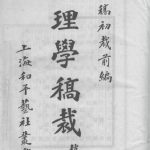 稿初裁前編
理學稿裁
上海和平藝社叢